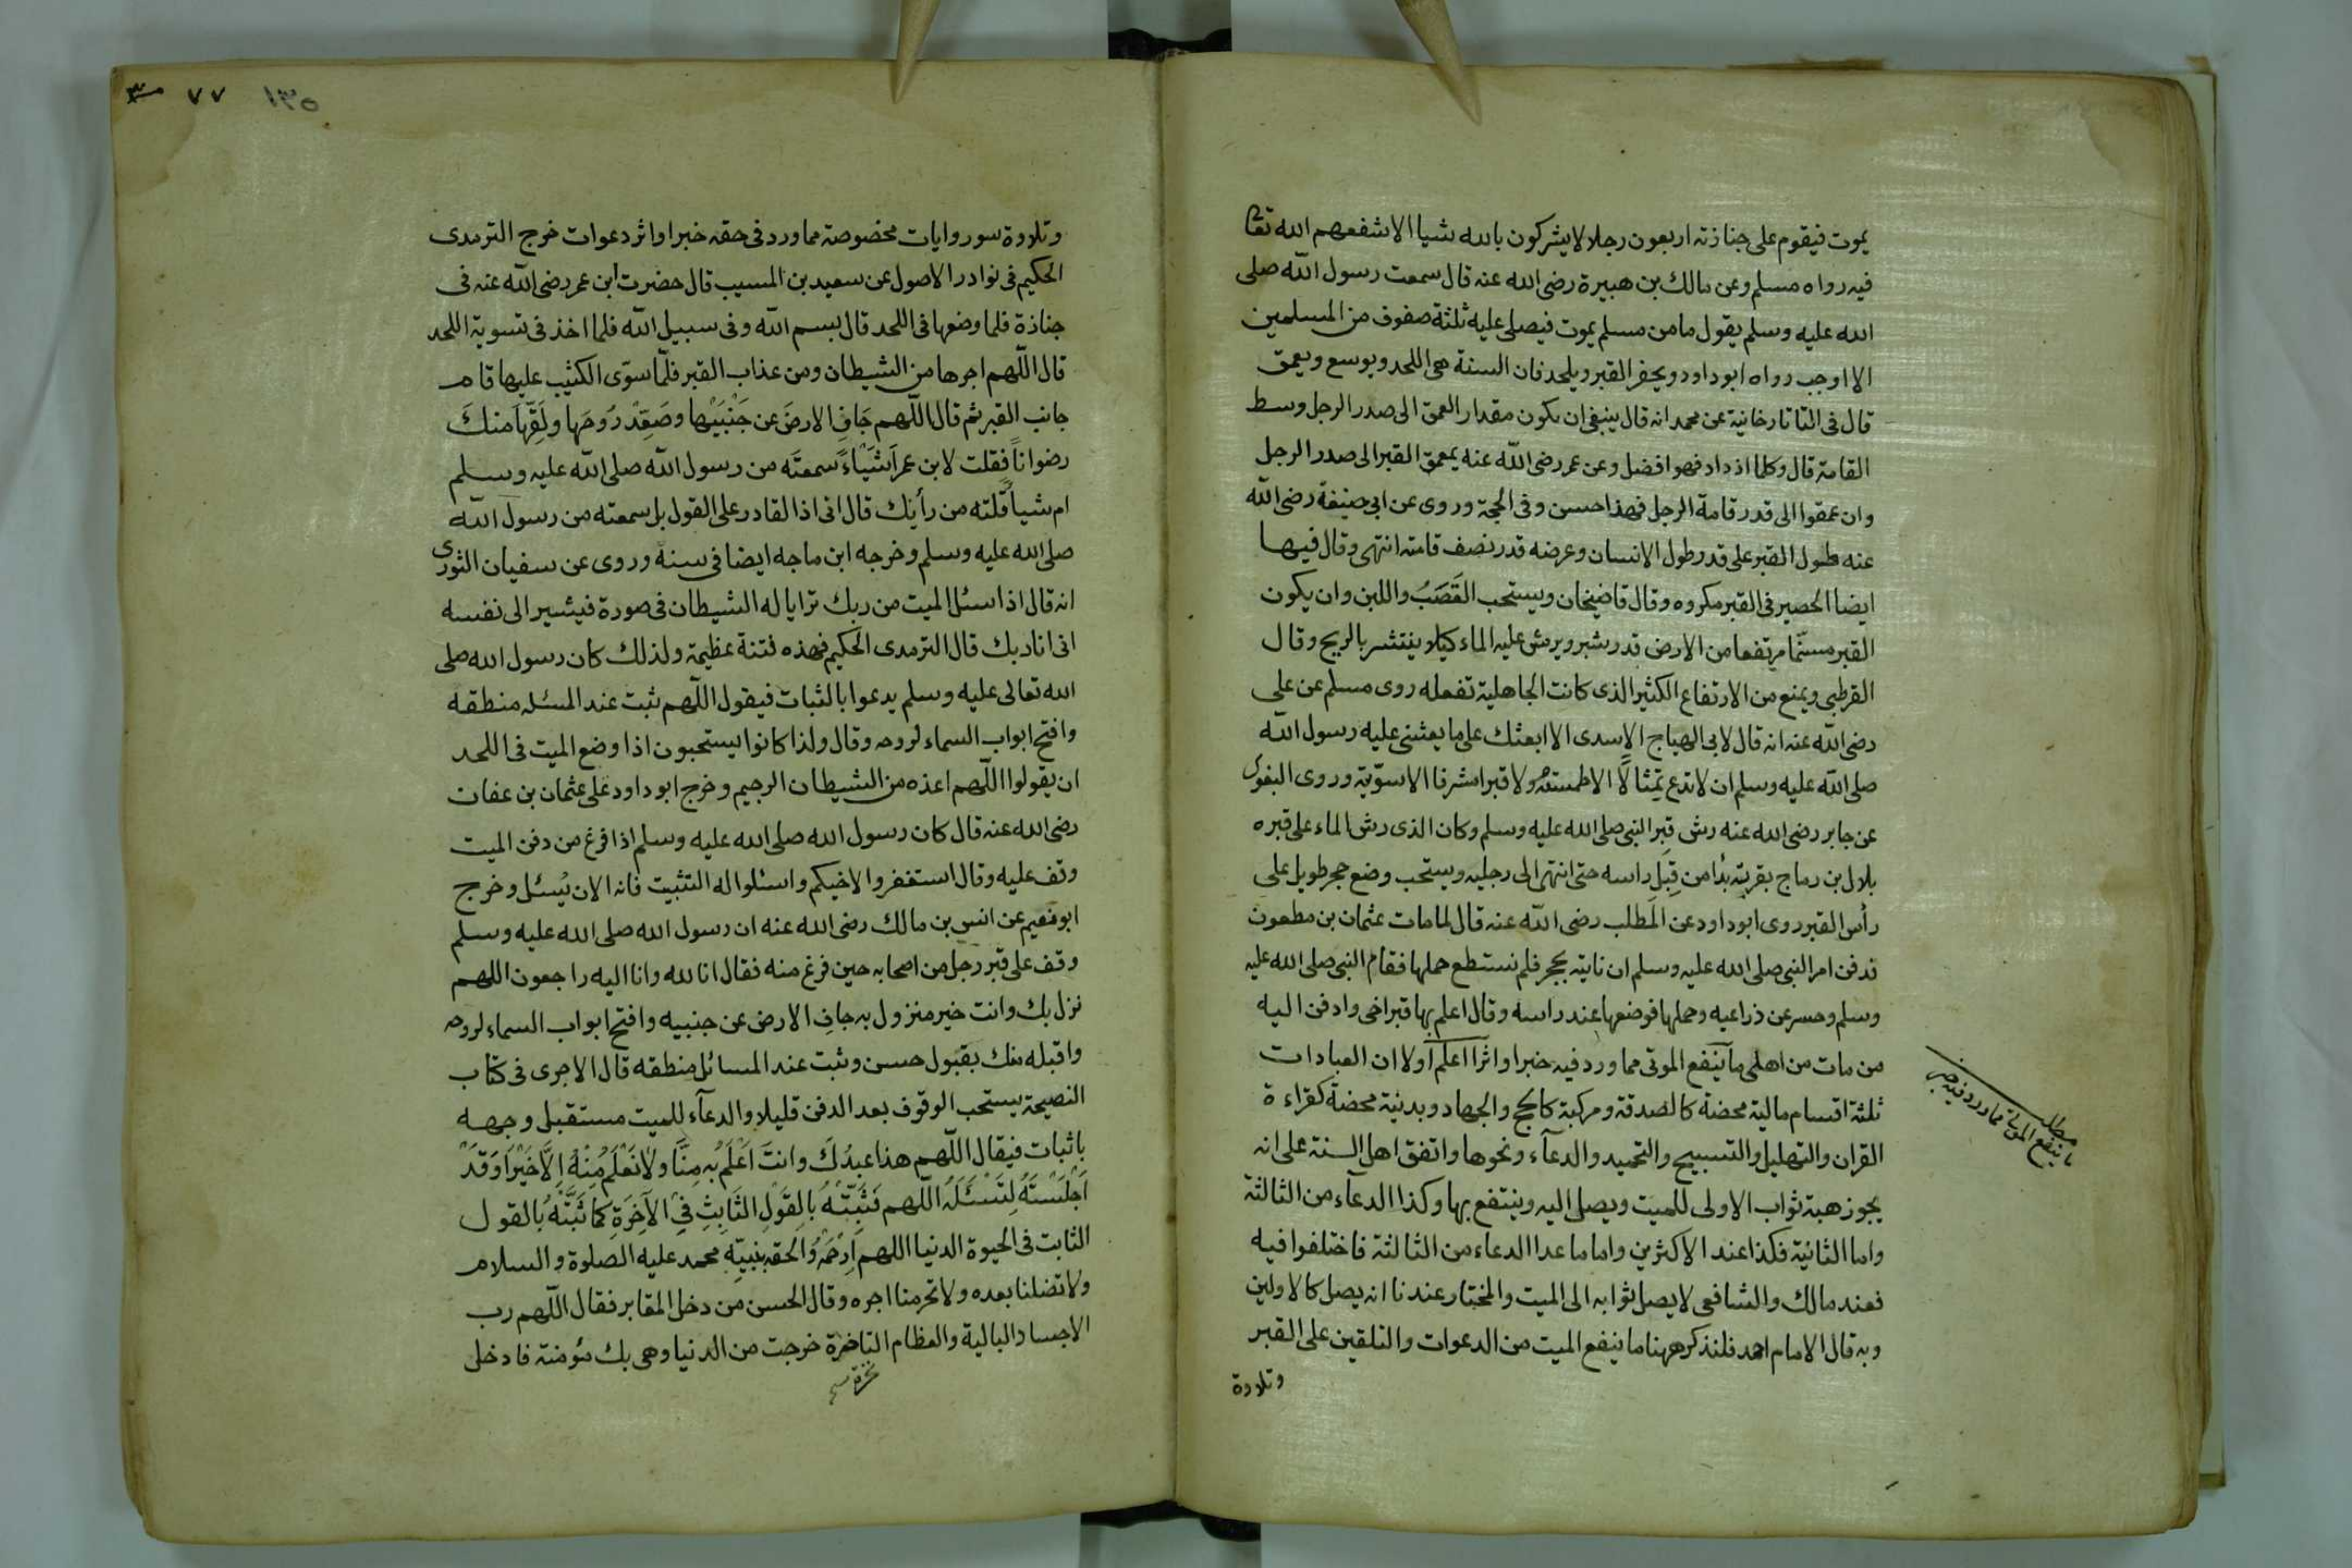 يموت فيقوم على جنازته اربعون رجلا لا يشركون بالله شيا الا شفعهم الله تعا
فيه رواه مسلم وعن مالك بن هبيرة رضى الله عنه قال سمعت رسول الله صلى
الله عليه وسلم يقول ما من مسلم يموت فيصلى عليه ثلثة صفوف من المسلمين
الا اوجب رواه ابو داود ويحفر القبر ويلحد فان السنة هى اللحد ويوسع ويعمق
قال فى التاتارخانية عن محمد انه قال ينبغى ان يكون مقدار العمق الى صدر الرجل وسط
القامة قال وكلما اذداد فهو افضل وعن عمر رضى الله عنه يعمق القبر الى صدر الرجل
وان عمقوا الى قدر قامة الرجل فهذا حسن وفى الحجة وروى عن ابى حنيفة رضى الله
عنه طول القبر على قدر طول الانسان وعرضه قدر نصف قامته انتهى وقال فيها
ايضا الحصير فى القبر مكروه وقال قاضيخان ويستحب القَصَبُ واللبن وان يكون
القبر مسنّما مرتفعا من الارض قدر شبر ويرش عليه الماء كيلا ينتشر بالريح وقال
القرطبى ويمنع من الارتفاع الكثير الذى كانت الجاهلية تفعله روى مسلم عن على
رضى الله عنه انه قال لابى الهياج الاسدى الا ابعثك على ما بعثنى عليه رسول الله
صلى الله عليه وسلم ان لا تدع تمثالًا الا طمسته ولا قبرا مشرفا الا سوّيته وروى البغوى
عن جابر رضى الله عنه رش قبر النبى صلى الله عليه وسلم وكان الذى رش الماء على قبره
بلال بن رماح بقربة بدأ من قِبَلِ راسه حتى انتهى الى رجليه ويستحب وضع حجر طويل على
رأس القبر روى ابو داود عن المطلب رضى الله عنه قال لما مات عثمان بن مطعون
ندفن امر النبى صلى الله عليه وسلم ان ناتيه بحجر فلم نستطع حملها فقام النبى صلى الله عليه
وسلم وحسر عن ذراعيه وحملها فوضعها عند راسه وقال اعلم بها قبر اخى وادفن اليه
من مات من اهلى ما ينفع الموتى مما ورد فيه خبرا واثرا اعلم اولا ان العبادات
ثلثة اقسام مالية محضة كالصدقة ومركبة كالحج والجهاد وبدنية محضة كقراءة
القران والتهليل والتسبيح والتحميد والدعآء ونحوها واتفق اهل السنة على انه
يجوز هبة ثواب الاولى للميت ويصل اليه وينتفع بها وكذا الدعآء من الثالثة
واما الثانية فكذا عند الاكثرين واما ما عدا الدعاء من الثالثة فاختلفوا فيه
فعند مالك والشافعى لا يصل ثوابه الى الميت والمختار عندنا انه يصل كالاولين
وبه قال الامام احمد فلنذكر ههنا ما ينفع الميت من الدعوات والتلقين على القبر
وتلاوة
مطلب
ما ينفع الموتى مما ورد فيه خبر
١٣٥ ٧٧
وتلاوة سور وايات مخصوصة مما ورد فى حقه خبر او اثر دعوات خرج الترمدى
الحكيم فى نوادر الاصول عن سعيد بن المسيب قال حضرت ابن عمر رضى الله عنه فى
جنازة فلما وضعها فى اللحد قال بسم الله وفى سبيل الله فلما اخذ فى تسوية اللحد
قال اللّهم اجرها من الشيطان ومن عذاب القبر فلمّا سوّى الكثيب عليها قام
جانب القبر ثم قال اللّهم جَافِ الارضَ عن جَنْبَيْها وصَعِّدْ رُوحَها ولَقِّهَا منكَ
رضوانًا فقلت لابن عمر اَشَيْاءً سمعتَه من رسول الله صلى الله عليه وسلم
ام شيأ قلته من رأيك قال انى اذا لقادر على القول بل سمعته من رسول الله
صلى الله عليه وسلم وخرجه ابن ماجه ايضا فى سننه وروى عن سفيان الثورى
انه قال اذا سئل الميت من ربك ترايا له الشيطان فى صورة فيشير الى نفسه
انى انا ربك قال الترمدى الحكيم فهذه فتنة عظيمة ولذلك كان رسول الله صلى
الله تعالى عليه وسلم يدعوا بالثبات فيقول اللّهم ثبت عند المسئله منطقه
وافتح ابواب السماء لروحه وقال ولذا كانوا يستحبون اذا وضع الميت فى اللحد
ان يقولوا اللّهم اعذه من الشيطان الرجيم وخرج ابو داود على عثمان بن عفان
رضى الله عنه قال كان رسول الله صلى الله عليه وسلم اذا فرغ من دفن الميت
وقف عليه وقال استغفروا لاخيكم واسئلوا له التثبيت فانه الان يُسئل وخرج
ابو نعيم عن انس بن مالك رضى الله عنه ان رسول الله صلى الله عليه وسلم
وقف على قبر رجل من اصحابه حين فرغ منه فقال انا لله وانا اليه راجعون اللهم
نزل بك وانت خير منزول به جافِ الارض عن جنبيه وافتح ابواب السماء لروحه
واقبله منك بقبول حسن وثبت عند المسائل منطقه قال الاجرى فى كتاب
النصيحة يستحب الوقوف بعد الدفن قليلا والدعآء للميت مستقبل وجهه
باثبات فيقال اللّهم هذا عبدُكَ وانتَ اَعْلَمُ بِه مِنَّا ولا نَعْلَمُ مِنْهُ اِلَّا خَيْرًا وَقَدْ
اَجْلَسْتَهُ لِتَسْئَلَهُ اللّهم فَثَبِّتْهُ بالقَوْلِ الثَابِتِ فِي الآخِرَةِ كما ثَبَّتَّهُ بالقول
الثابت فى الحيوة الدنيا اللهم اِرْحَمْهُ والحقه بنبيّهِ محمد عليه الصلوة والسلام
ولا تضلنا بعده ولا تحرمنا اجره وقال الحسن من دخل المقابر فقال اللّهم رب
الاجساد البالية والعظام الناخرة خرجت من الدنيا وهى بك مؤمنة فادخل
نخرة